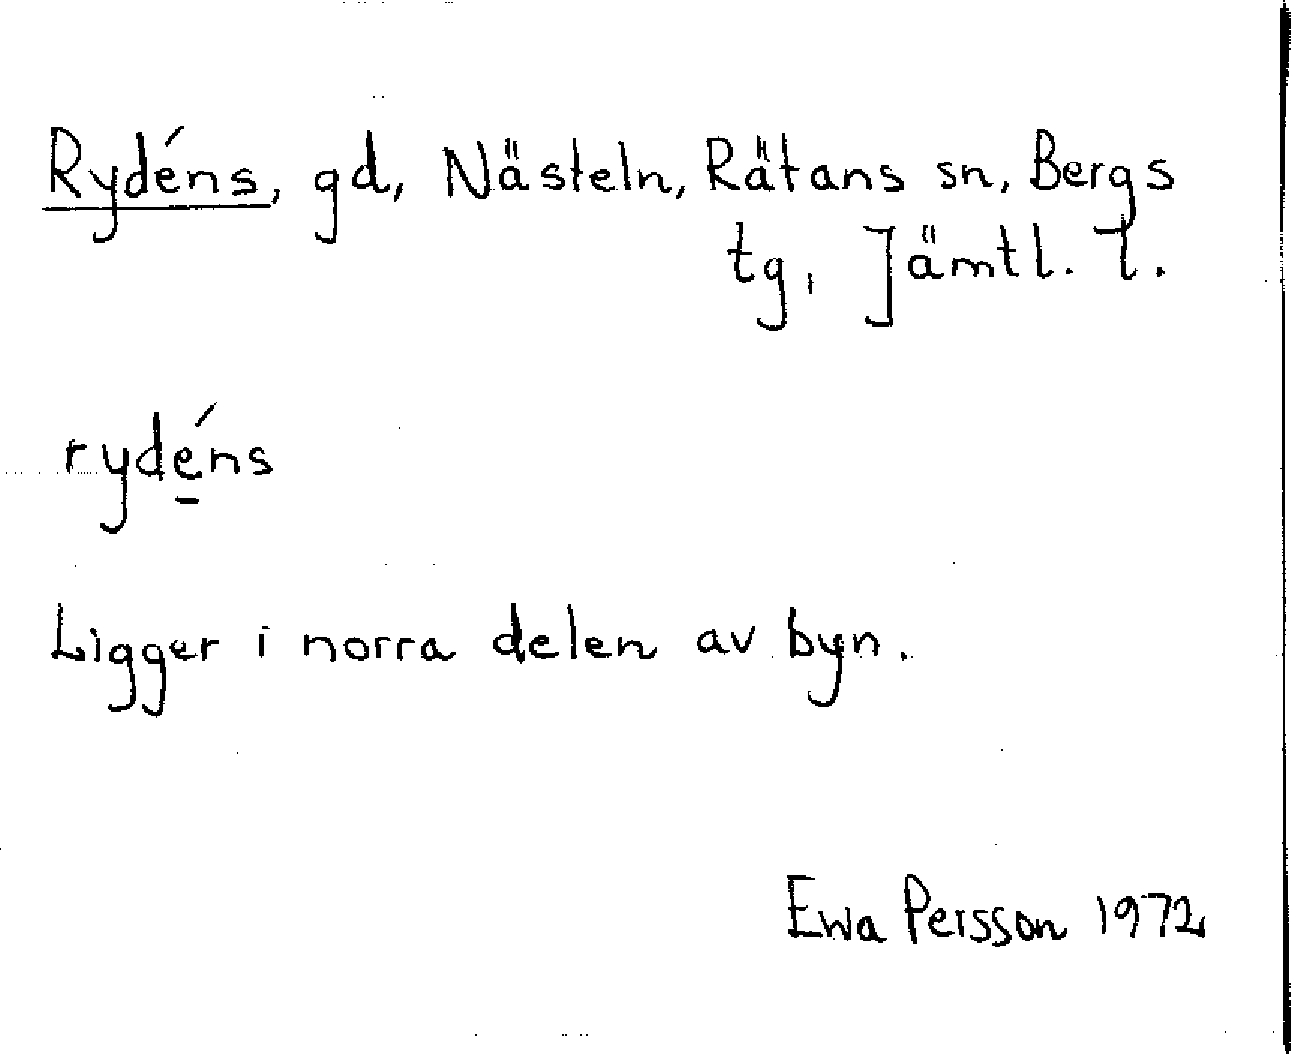 Rydéns, gd, Nästeln, Rätans sn, Bergs
tg, Jämtl. l.
rydéns
Ligger i norra delen av byn.
Ewa Persson 1972